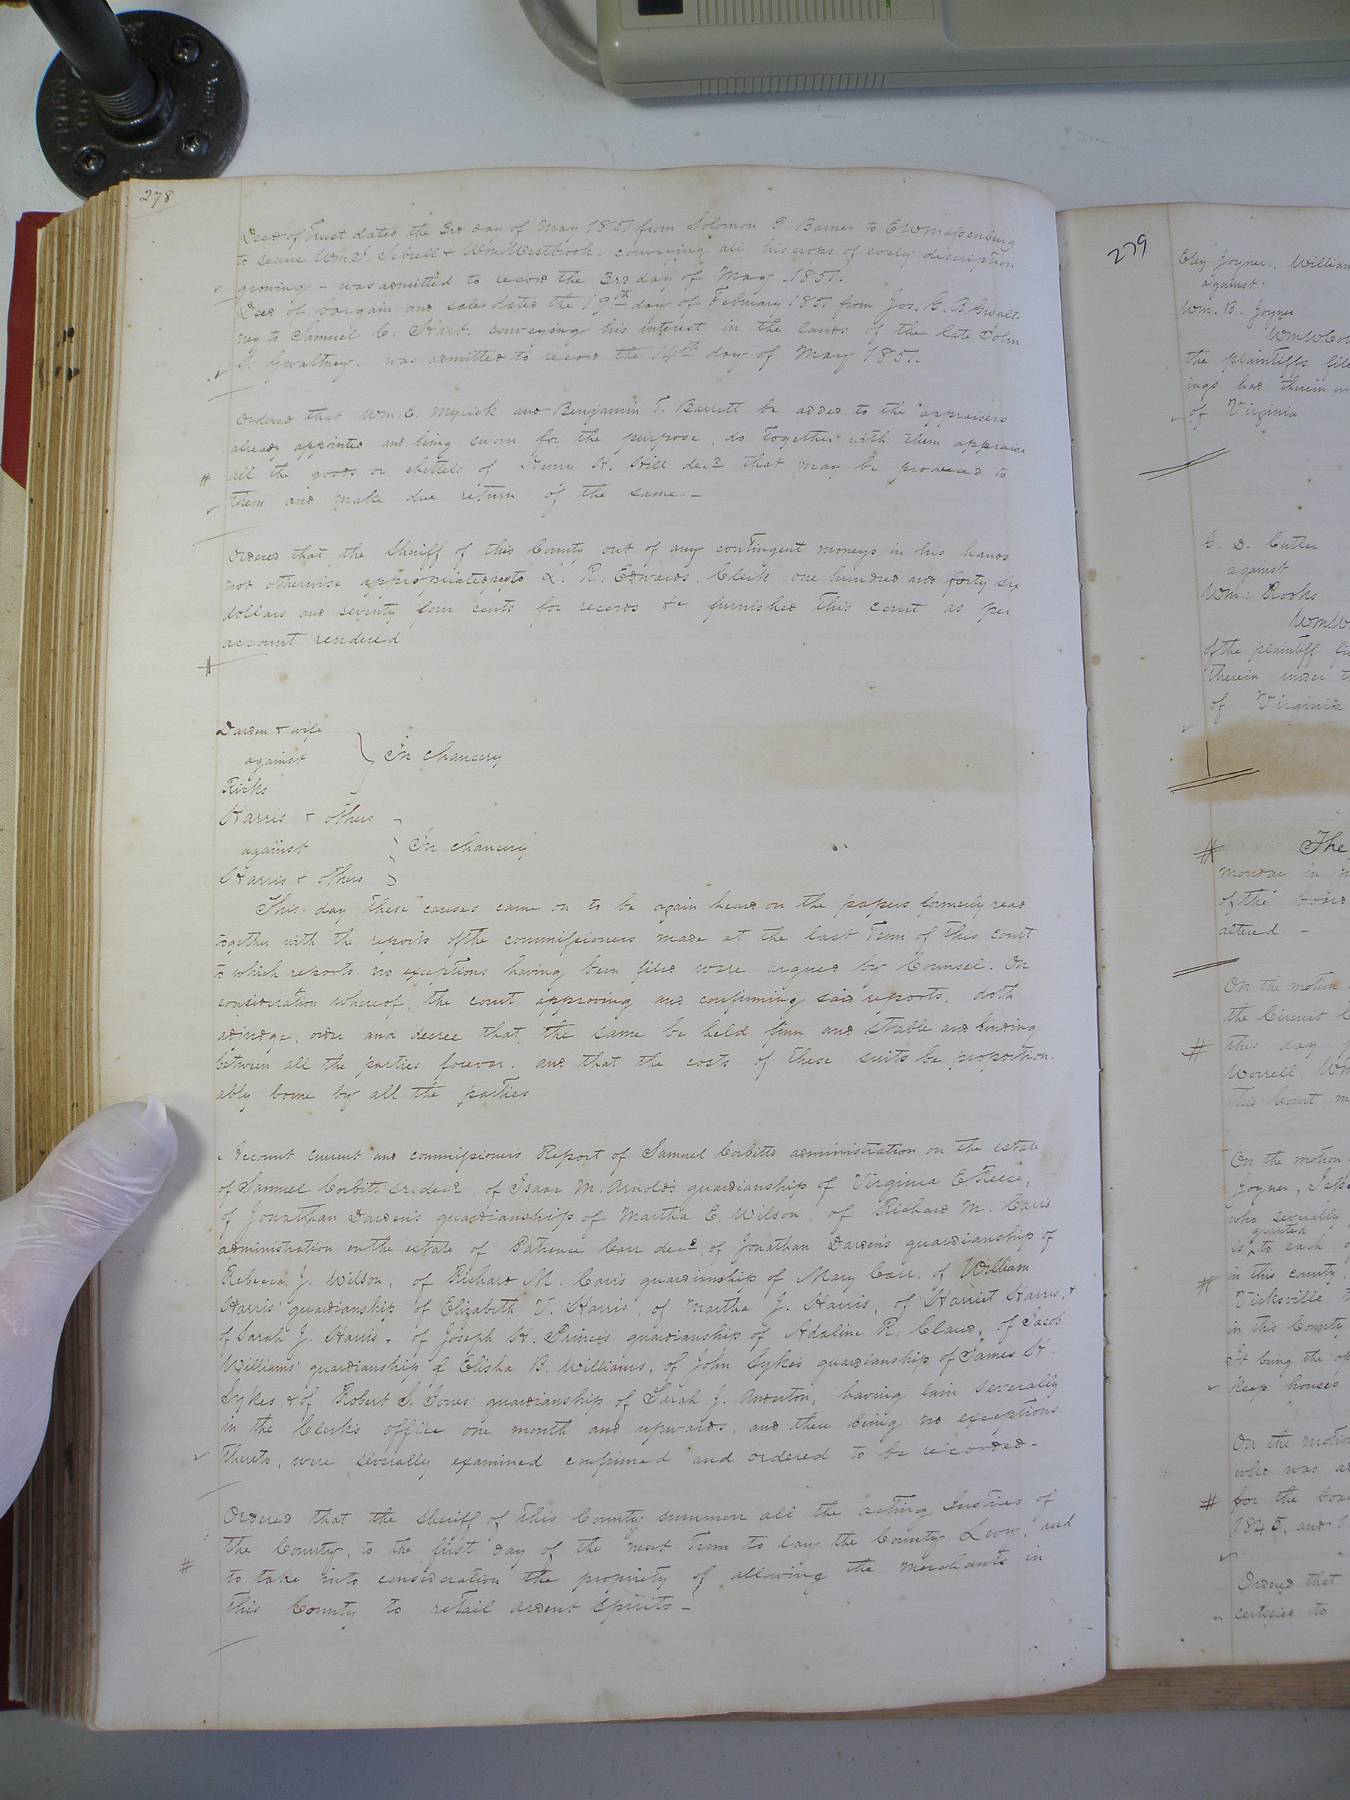 278
Deed of Trust dated the 3rd day of May 1851 from Solomon P. Barnes to E W Massenburg
to secure Wm. J. Sebrell & Wm Westbrook conveying all his crops of every description
growing - was admitted to record the 3rd day of May 1851.
Deed of bargain and sale dated the 19th day of February 1851 from Jos. G. B. Gwalt-
ney to Samuel C. Hart conveying his interest in the lands of the late John
Gwaltney. was admitted to record the 14th day of May 1851.
Ordered that Wm. C. Myrick and Benjamin T. Barrett be added to the appraisers
already appointed and being sworn for the purpose, do together with them appraise
all the goods or chattels of Henry H. Hill decd that may be produced to
them and make due return of the same -
Ordered that the Sheriff of this County out of any contingent moneys in his hands
not otherwise appropriated pay to L. R. Edwards Clerk one hundred and forty six
dollars and seventy four cents for records &c furnished this court as per
account rendered
Darden & wife
against } In chancery
Ricks
Harris & others
against } In chancery
Harris & others
This day these causes came on to be again heard on the papers formerly read
together with the reports of the commissioners made at the last Term of this court
to which reports no exceptions having been filed were argued by Counsel. On
consideration whereof, the court approving and confirming said reports, doth
adjudge, order and decree that the same be held firm and stable and binding
between all the parties forever. and that the costs of these suits be proportion-
ably borne by all the parties
Account current and commissioners Report of Samuel Corbitts administration on the estate
of Samuel Corbitt sr. decd, of Isaac M. Arnold's guardianship of Virginia E. Reese,
of Jonathan Darden's guardianship of Martha E. Wilson, of Richard M. Carrs
administration on the estate of Patience Carr decd, of Jonathan Darden's guardianship of
Rebecca J. Wilson, of Richard M. Carr's guardianship of Mary Carr. of William
Harris' guardianship of Elizabeth V. Harris, of Martha J. Harris, of Harriet Harris, &
of Sarah J. Harris, of Joseph H. Prince's guardianship of Adaline R. Claud, of Jacob
Williams' guardianship of Elisha B. Williams, of John Sykes guardianship of James H.
Sykes, & of Robert S. Jones' guardianship of Sarah J. having lain severally
in the Clerk's office one month and upwards, and there being no exceptions
thereto, were severally examined confirmed and ordered to be recorded -
Ordered that the Sheriff of this County summon all the acting Justices of
the County, to the first day of the next Term to lay the County Levy, and
to take into consideration the propriety of allowing the merchants in
this County to retail ardent spirits -
279
Eley Joyner, William
against
Wm. B. Joyner
the plaintiffs
ings had therein
of Virginia
Cutler
against
Wm. Rooks
of the plaintiff
therein under
of Virginia
The
monday in
of the board
altered -
On the motion
the Circuit
this day
Worrell, Wm
this Court
On the motion
Joyner,
who severally
granted
is to each
in this county,
Vicksville
in this County
It being the
keep houses
On the motion
who was
for the
1845, and
Ordered that
certified to